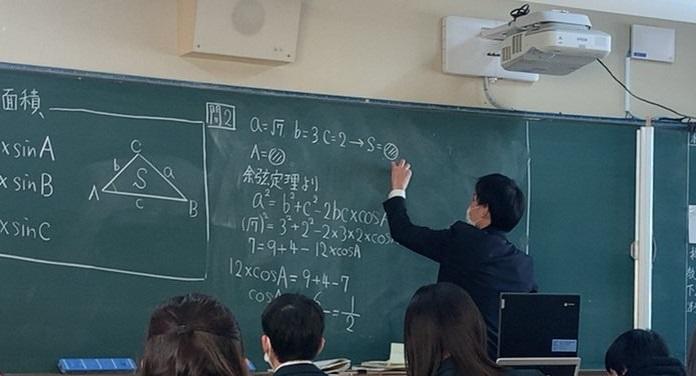 面積
xsinA
xsinB
xsinC
C
b
a
S
A
c
B
問2
a=√7 b=3 c=2→S=
A=
余弦定理より
a²=b²+c²-2bc×cosA
(√7)²=3²+2²-2×3×2×cos
7=9+4-12×cosA
12×cosA=9+4-7
cos
=1/2